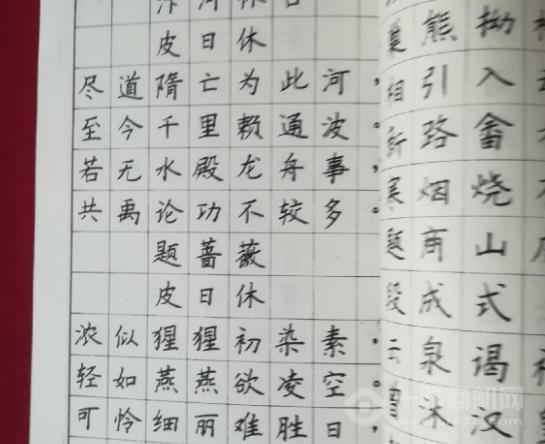 皮日休
尽道隋亡为此河，
至今千里赖通波。
若无水殿龙舟事，
共禹论功不较多。
题蔷薇
皮日休
浓似猩猩初染素，
轻如燕燕欲凌空。
可怜细丽难胜日
熊拗
相引入
路畬
烟烧
题商山
段成式
云泉谒
曾沐汉